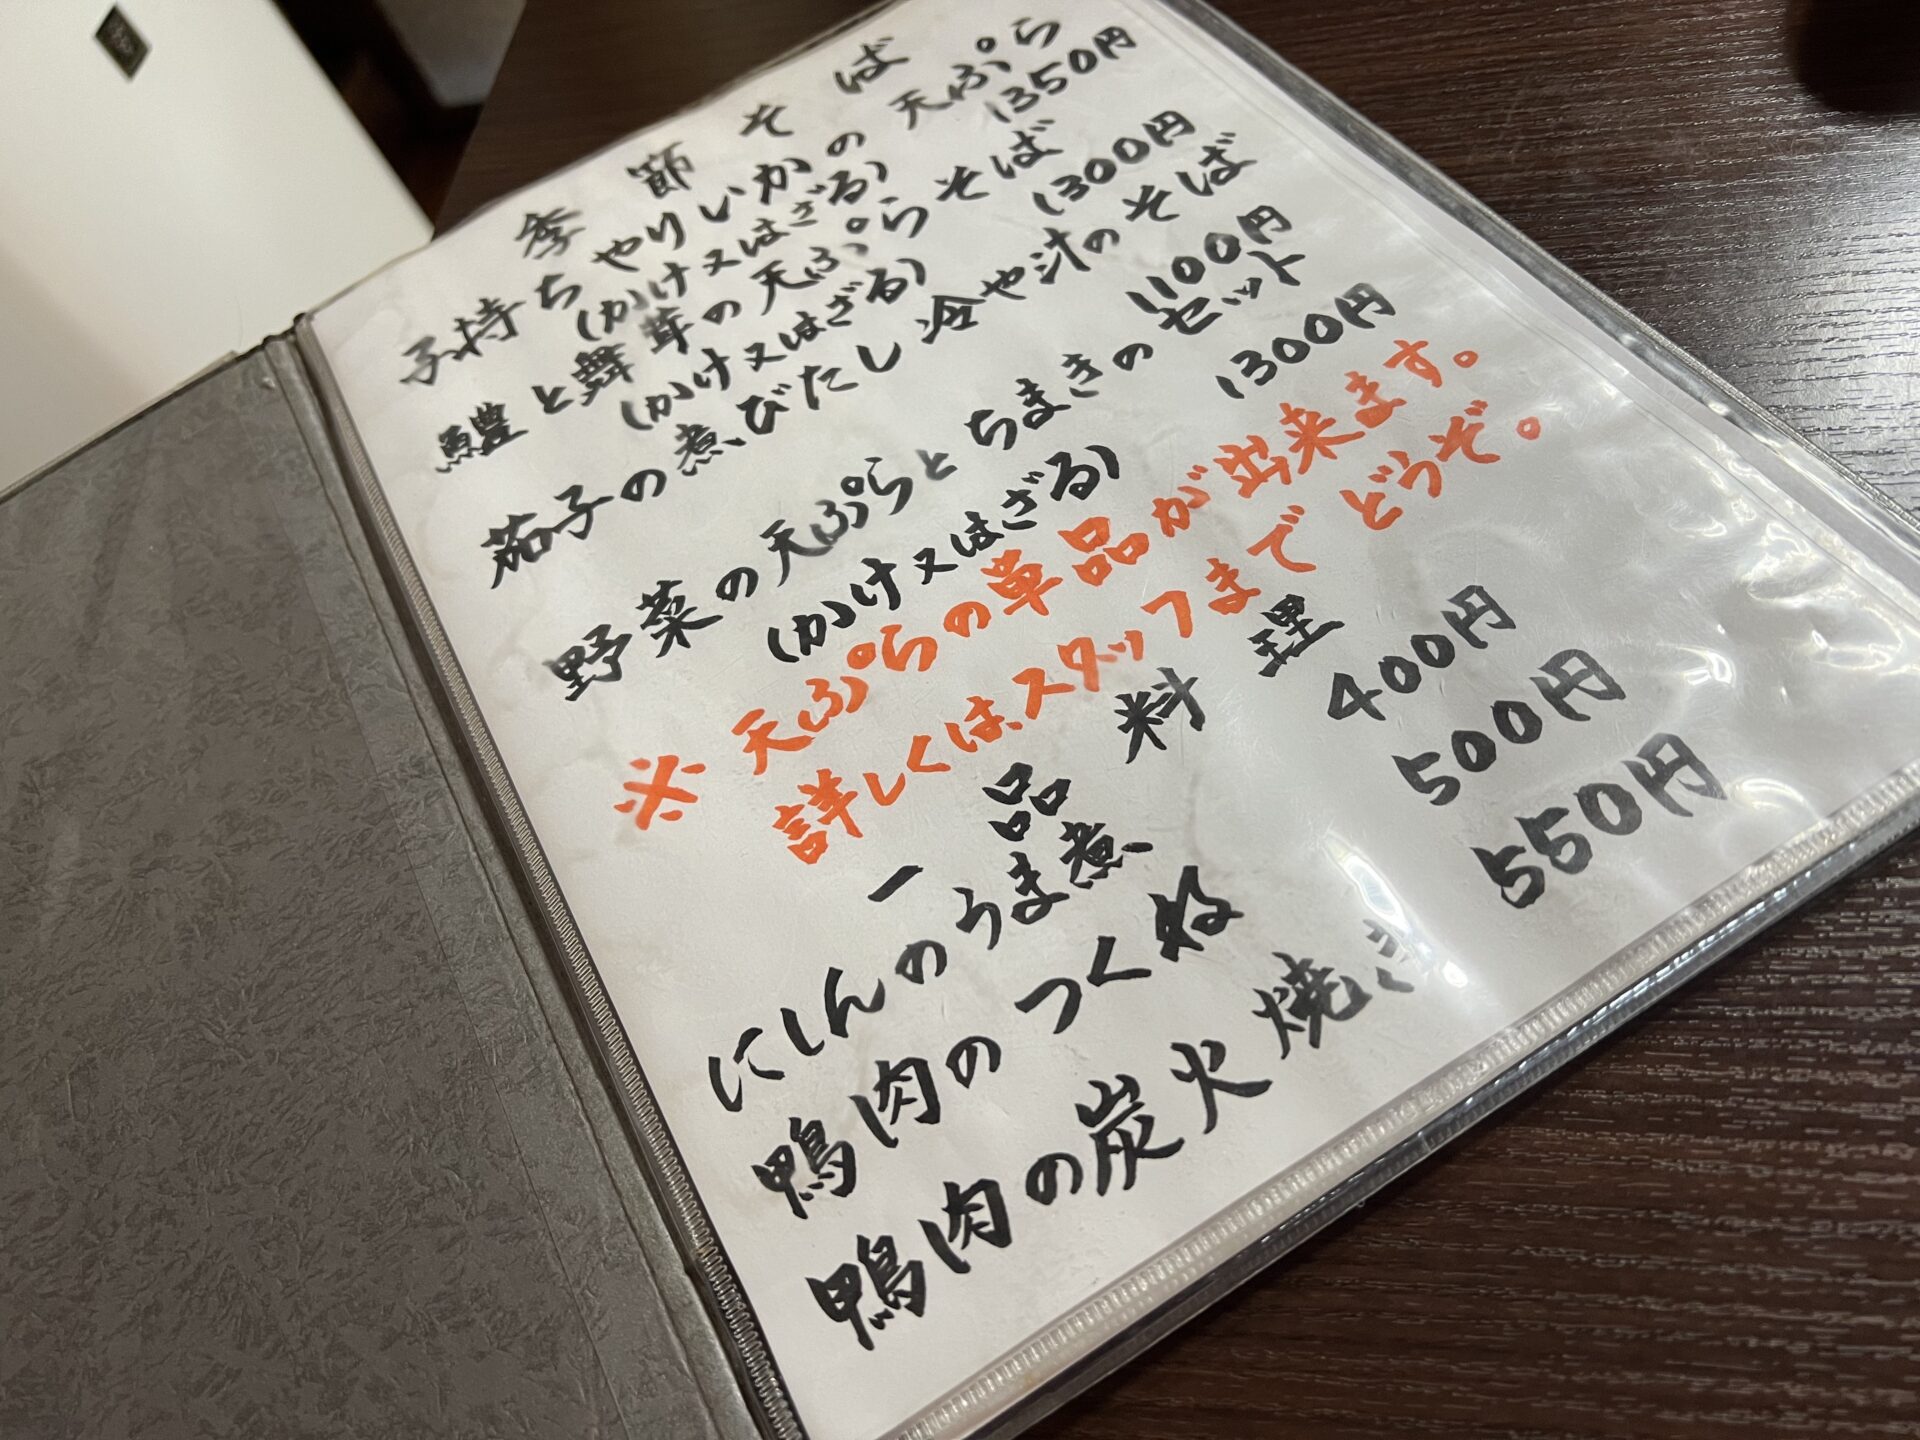 季節そば
子持ちやりいかの天ぷら
(かけ又はざる) 1350円
鱧と舞茸の天ぷらそば
(かけ又はざる) 1300円
茄子の煮びたし冷や汁のそば
1100円
野菜の天ぷらとちまきのセット
(かけ又はざる) 1300円
※ 天ぷらの単品が出来ます。
詳しくはスタッフまでどうぞ。
一品料理
にしんのうま煮 400円
鴨肉のつくね 500円
鴨肉の炭火焼き 550円